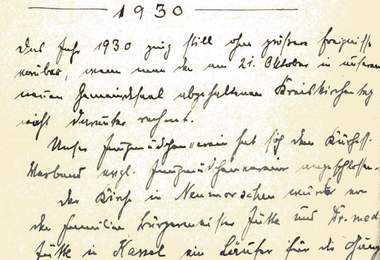 1930
Das Jahr 1930 ging still ohne größere Ereignisse
vorüber, wenn man den am 21. Oktober in unserem
neuen Gemeindesaal abgehaltenen Kreiskirchentag
nicht darunter rechnet.
Unser Jungmädchenverein hat sich dem Kurhess.
Verband evgl. Jungmädchenvereine angeschlossen.
Der Kirche in Neumorschen wurde von
den Familien Bürgermeister Jütte und Dr. med.
Jütte in Kassel ein Läufer für die Gänge